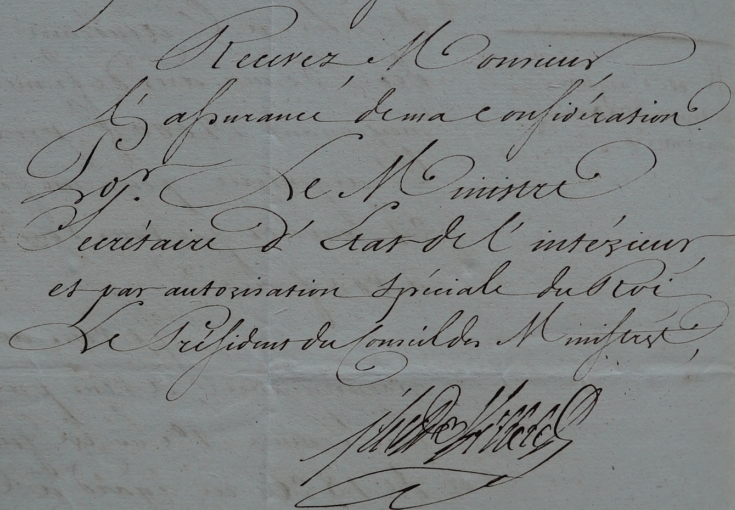 Recevez Monsieur
l'assurance de ma considération
Por. Le Ministre
Secrétaire d'Etat de l'intérieur
et par autorisation spéciale du Roi
Le Président du Conseil des Ministres,